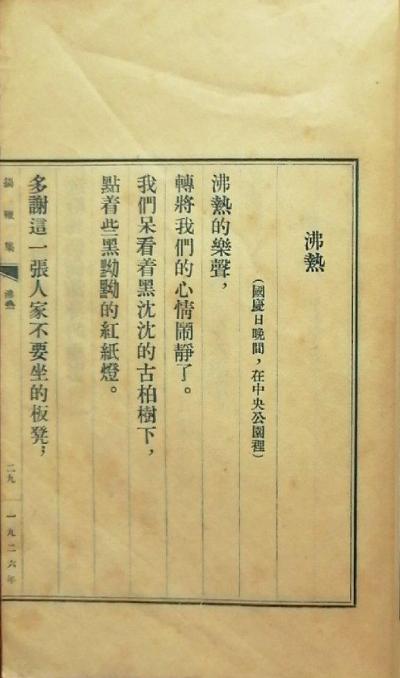 沸熱
(國慶日晚間,在中央公園裡)
沸熱的樂聲,
轉將我們的心情鬧靜了。
我們呆看着黑沈沈的古柏樹下,
點着些黑黝黝的紅紙燈。
多謝這一張人家不要坐的板凳,
鍋鞭集 沸熱 二九 一九二六年